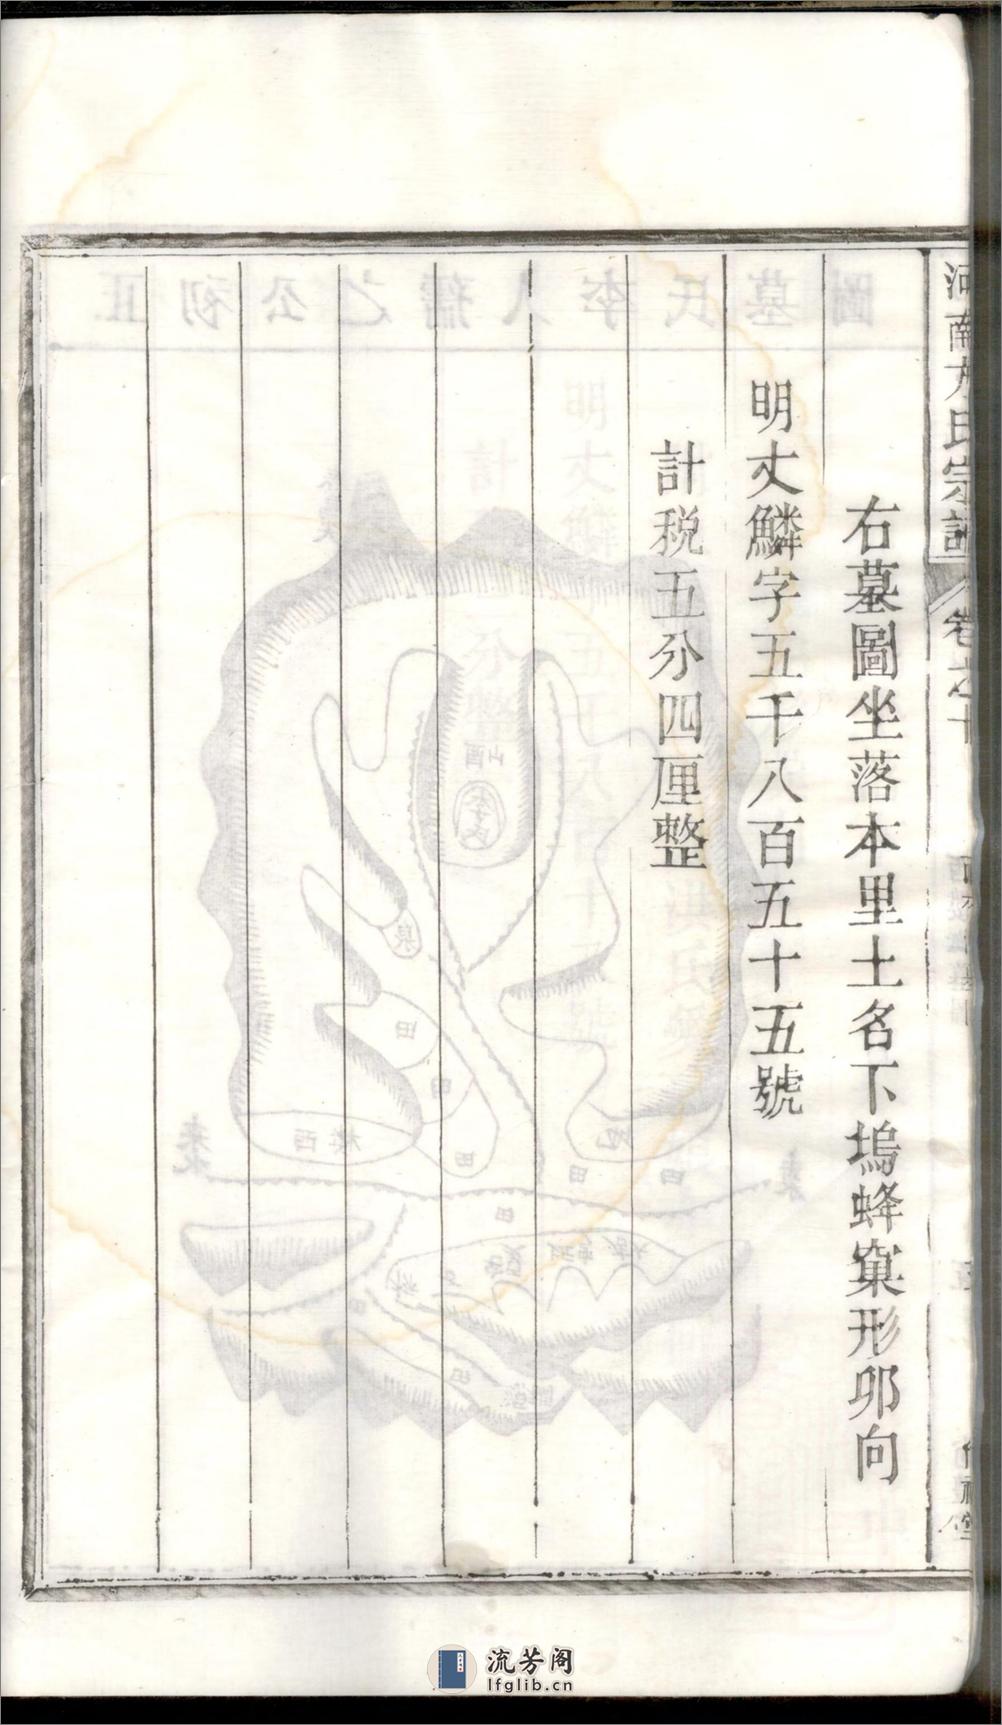 河南方氏宗譜
卷之十
右墓圖坐落本里土名下塢蜂窠形卯向
明丈鱗字五千八百五十五號
計税五分四厘整
流芳阁
lfglib.cn